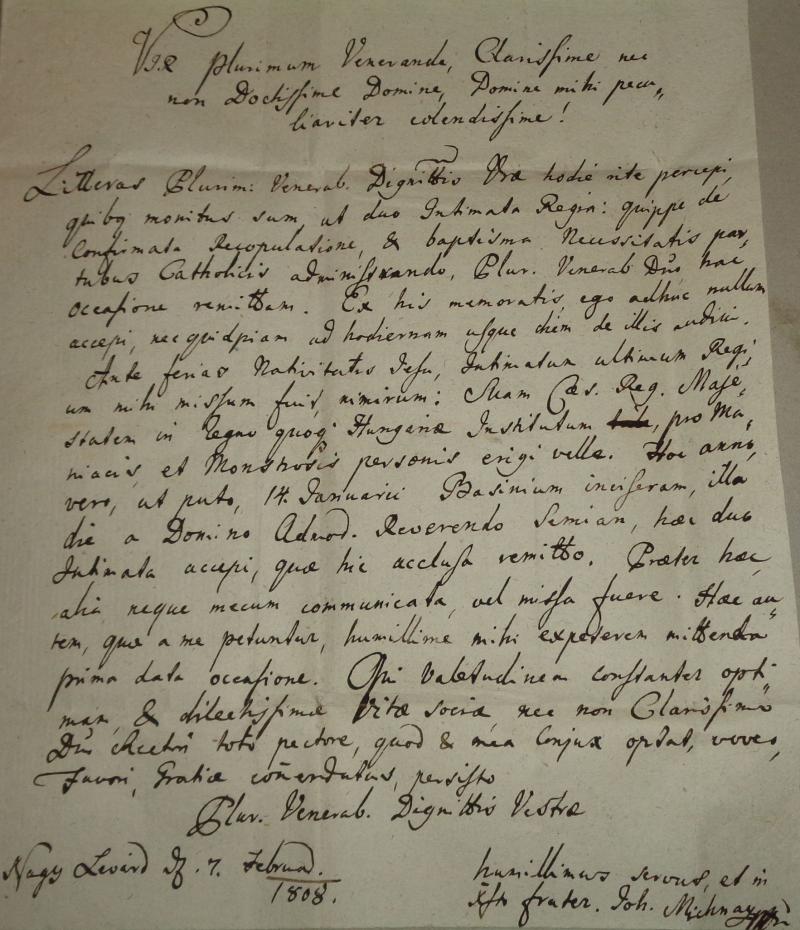 Vir plurimum Venerande, Clarissime nec
non Doctissime Domine, Domine mihi pecu„
liariter colendissime!
Litteras Plurim: Venerab. Dignittis Vræ hodie rite percepi,
quibq monitus sum ut duo Intimata Regia: quippe de
Confirmata Recopulatione, & baptismo Necessitatis par„
tubus Catholicis administrando, Plur. Venerab Dno hac
occasione remittam. Ex his memoratis, ego adhuc nullum
accepi, nec quidpiam ad hodiernum usque diem de illis audivi.
Ante ferias Nativitatis Jesu, Intimatum ultimum Regi„
um mihi missum fuit, nimirum: Suam Cæs. Reg. Maje„
statem in Regno quoq Hungariæ Institutum, pro Ma„
niacis, et Monstrosis personis erigi velle. Hoc anno,
vero, ut puto, 14. Januarii Basinium inciseram, illa
die a Domino Admod. Reverendo Semian, hæc duo
Intimata accepi, quæ hic acclusa remitto. Præter hæc,
alia neque mecum communicata, vel missa fuere. Hæc au„
tem, quæ a me petuntur, humillime mihi expeterem mittenda
prima data occasione. Qui Valetudinem constanter opti„
mam, & dilectissimæ Vitæ sociæ, nec non Clarissimi
Dni toto pectore, quod & mea Conjux optat, voveo,
Favori, Gratiæ comendatus, persisto
Plur. Venerab. Dignittis Vestræ
Nagy Levárd d. 7. Februar.
1808.
humillimus servus, et in
Xsto frater. Joh. Michnay